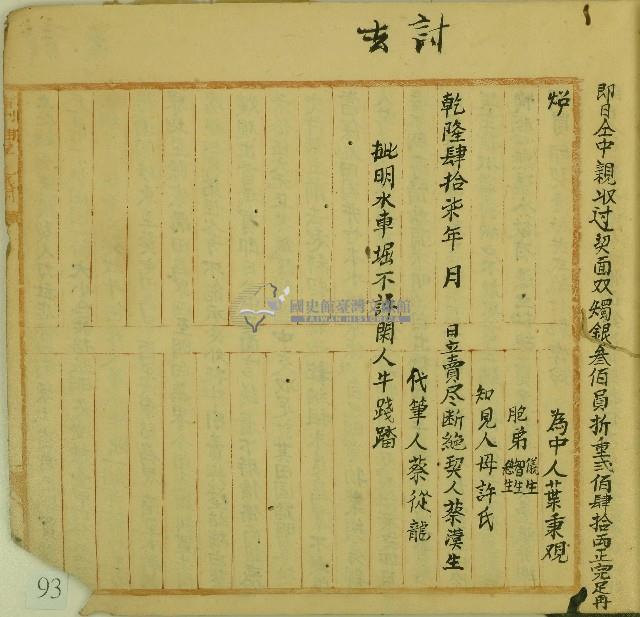 討去
即日仝中親收过契面双燭銀叁佰員折重弍佰肆拾両正完足再
炤
為中人葉秉观
胞弟儀生
智生
繼生
知見人母許氏
乾隆肆拾柒年 月 日立賣尽断絶契人蔡漢生
代筆人蔡從龍
批明水車堀不許閑人牛踐踏
國史館臺灣文獻館
TAIWAN HISTORICA
93